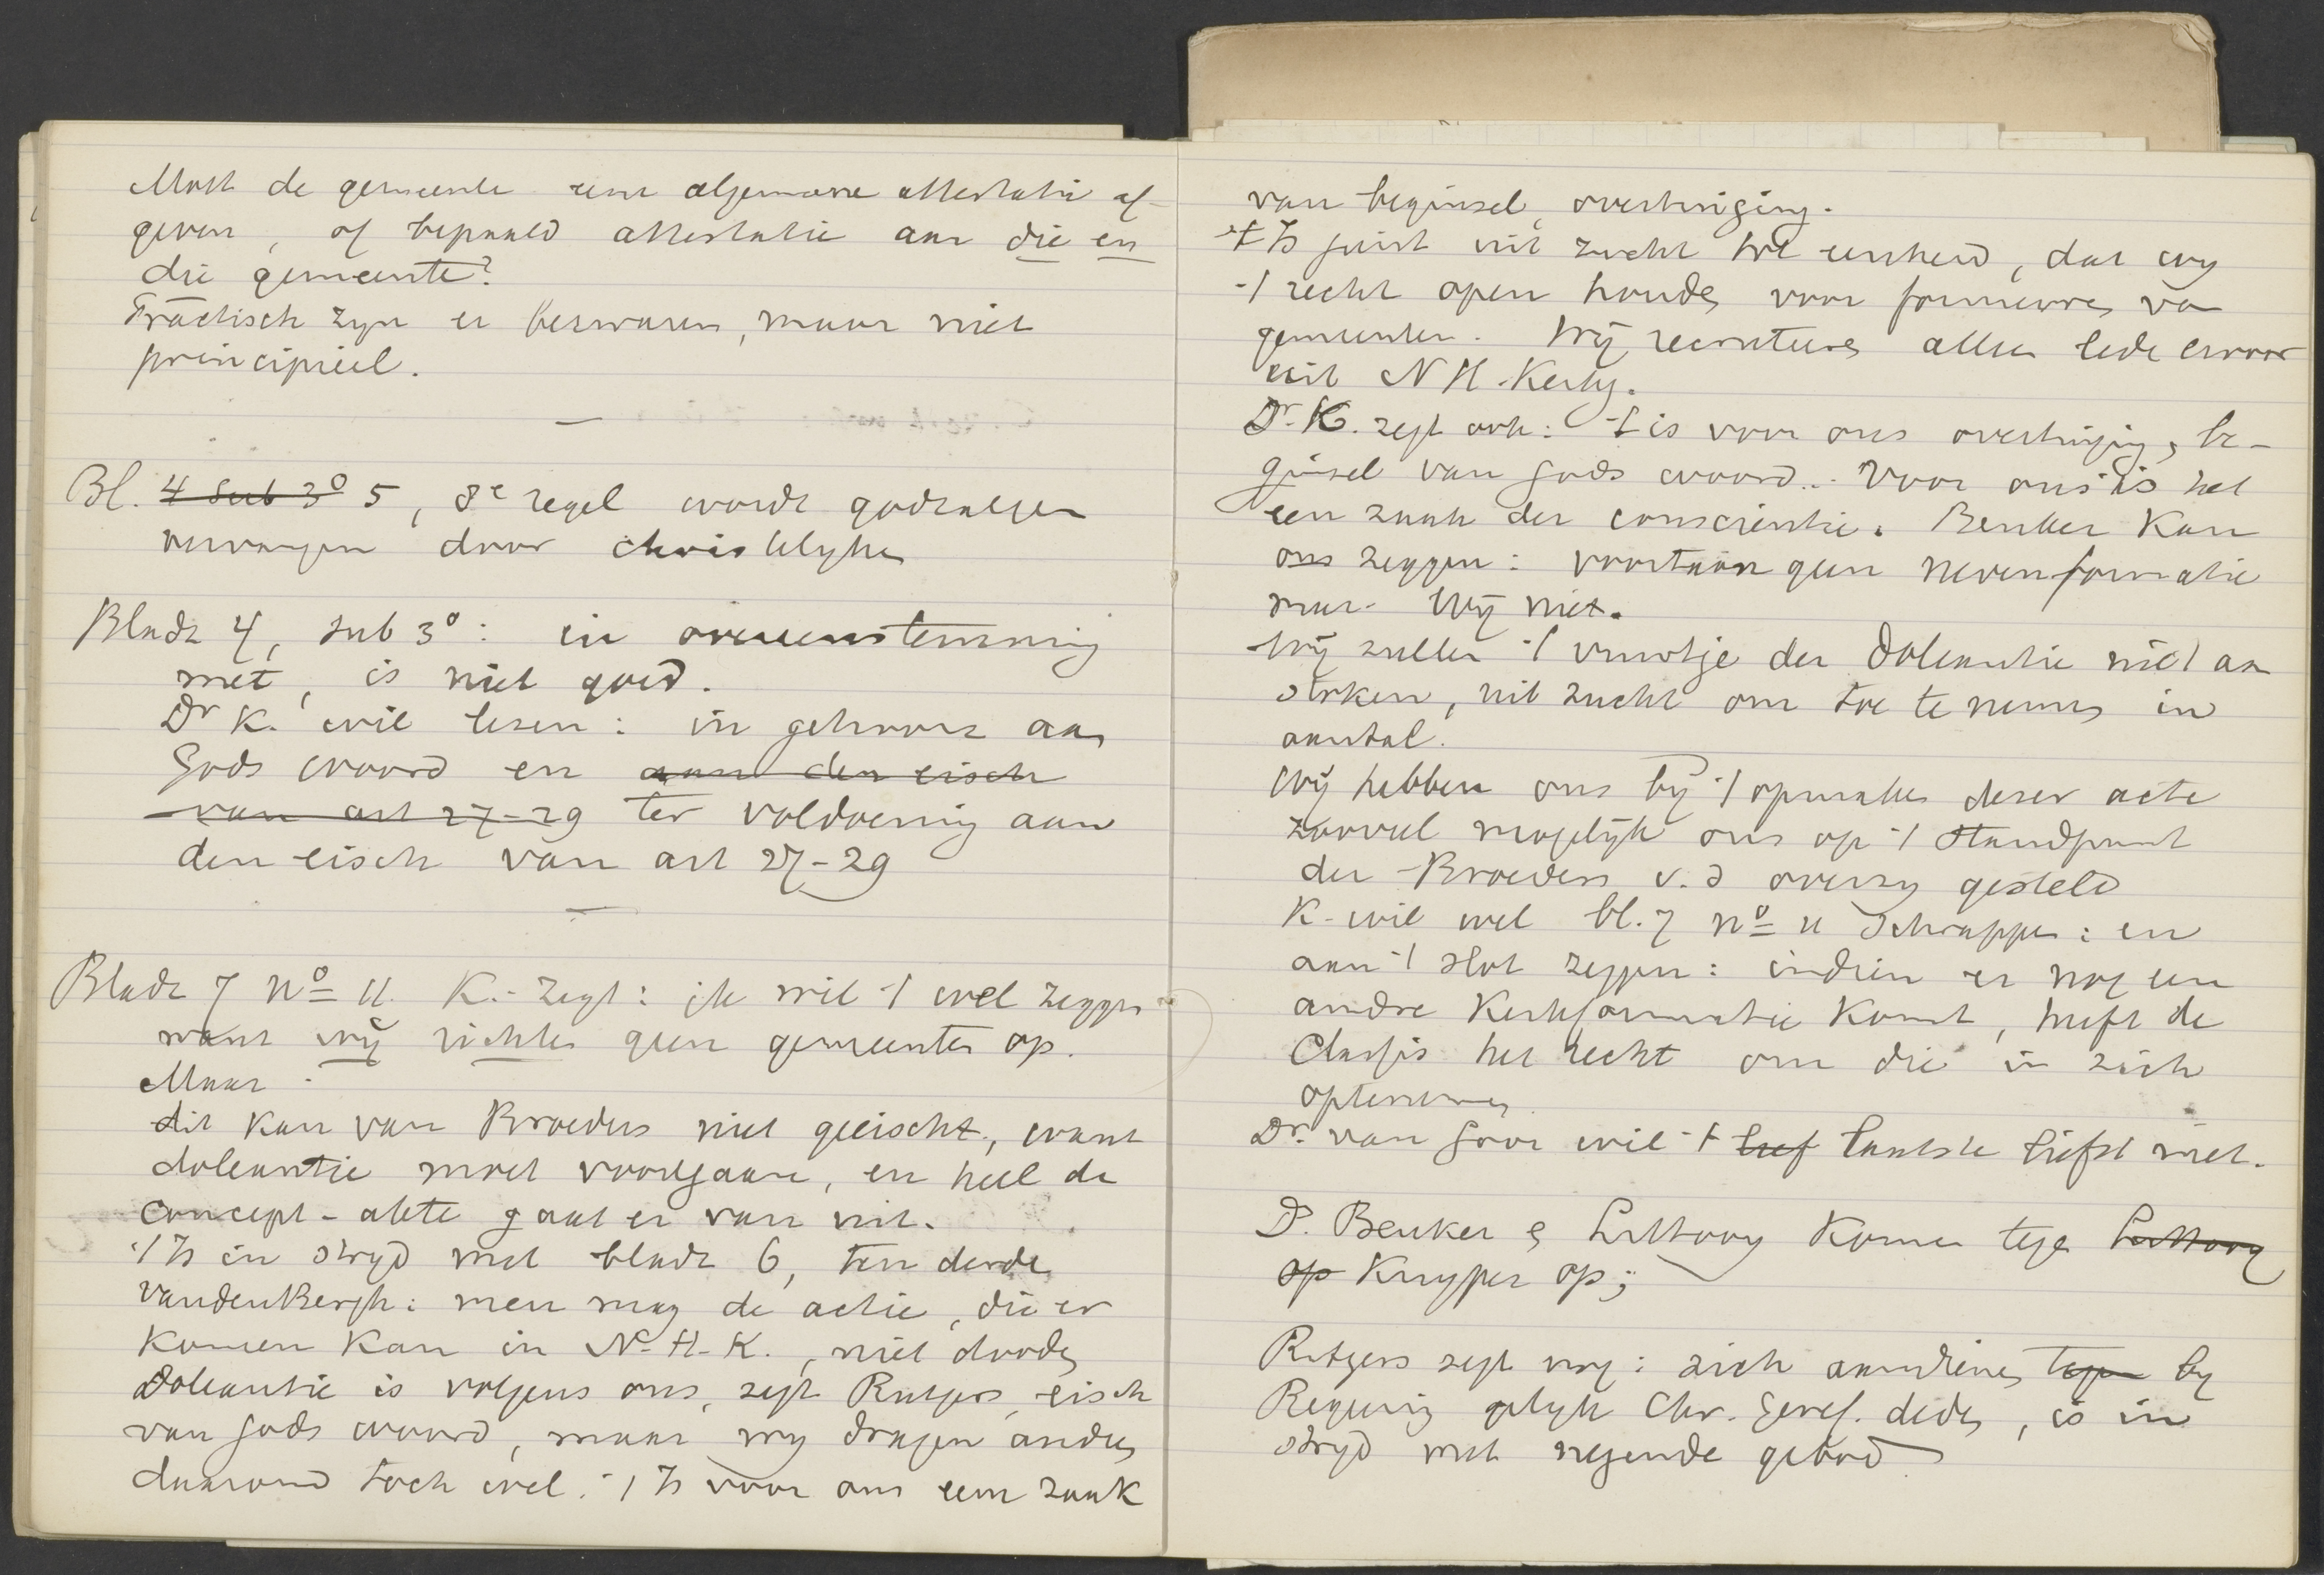 Moet de gemeente eene algemeene attestatie af-
geven, of bepaald attestatie aan die en
die gemeente?
Practisch zyn er bezwaren, maar niet
principieel.
—
Bl. 4 sub 3º 5, 8e regel wordt godzalegen
vervangen door christelyken
Bladz 4, sub 3º: in overeenstemming
met, is niet goed.
Dr K. wil lezen: in gehoorz aan
Gods woord en aan den eisch
van art 27-29 ter voldoening aan
den eisch van art 27-29
—
Bladz 7 Nº 11. K. zegt: ik wil 't wel zeggen
want wij richten geen gemeenten op.
Maar
dit kan van Broeders niet geëischt, want
doleantie moet voortgaan, en heel de
concept-akte gaat er van uit.
't Is in stryd met bladz 6, ten derde
vandenBergh: men mag de actie, die er
komen kan in N-H-K., niet dooden
Doleantie is volgens ons, zegt Rutgers, eisch
van Gods woord, maar wy dragen anders
daarom toch wel. 't Is voor ons eene zaak
van beginsel, overtuiging.
't Is juist uit zucht tot eenheid, dat wy
't recht open houden voor formeeren van
gemeenten. Wij recruteeren alleen leden ervoor
uit N H. Kerk.
Dr. K. zegt ook: 't is voor ons overtuiging, be-
ginsel van Gods woord... Voor ons is het
een zaak der conscientie. Beuker kan
ons zeggen: voortaan geen nevenformatie
maar wij niet.
Wij zullen 't vuurtje der Doleantie niet aan
stoken, uit zucht om toe te nemen in
aantal.
Wij hebben ons bij 't opmaken dezer acte
zooveel mogelijk ons op 't standpunt
der Broeders v.d overzy gesteld
K. wil wel bl. 7 nº 11 schrappen: en
aan 't slot zeggen: indien er nog een
andre Kerkformatie komt, heeft de
Classis het recht om die in zich
optenemen.
Dr. van Goor wil 't lief laatste liefst niet.
Ds. Beuker & Littooy komen tegen Littooy
op Kuyper op;
Rutgers zegt nog: zich aandienen tegen by
Regeering gelyk Chr. Geref. deden, is in
stryd met negende gebod